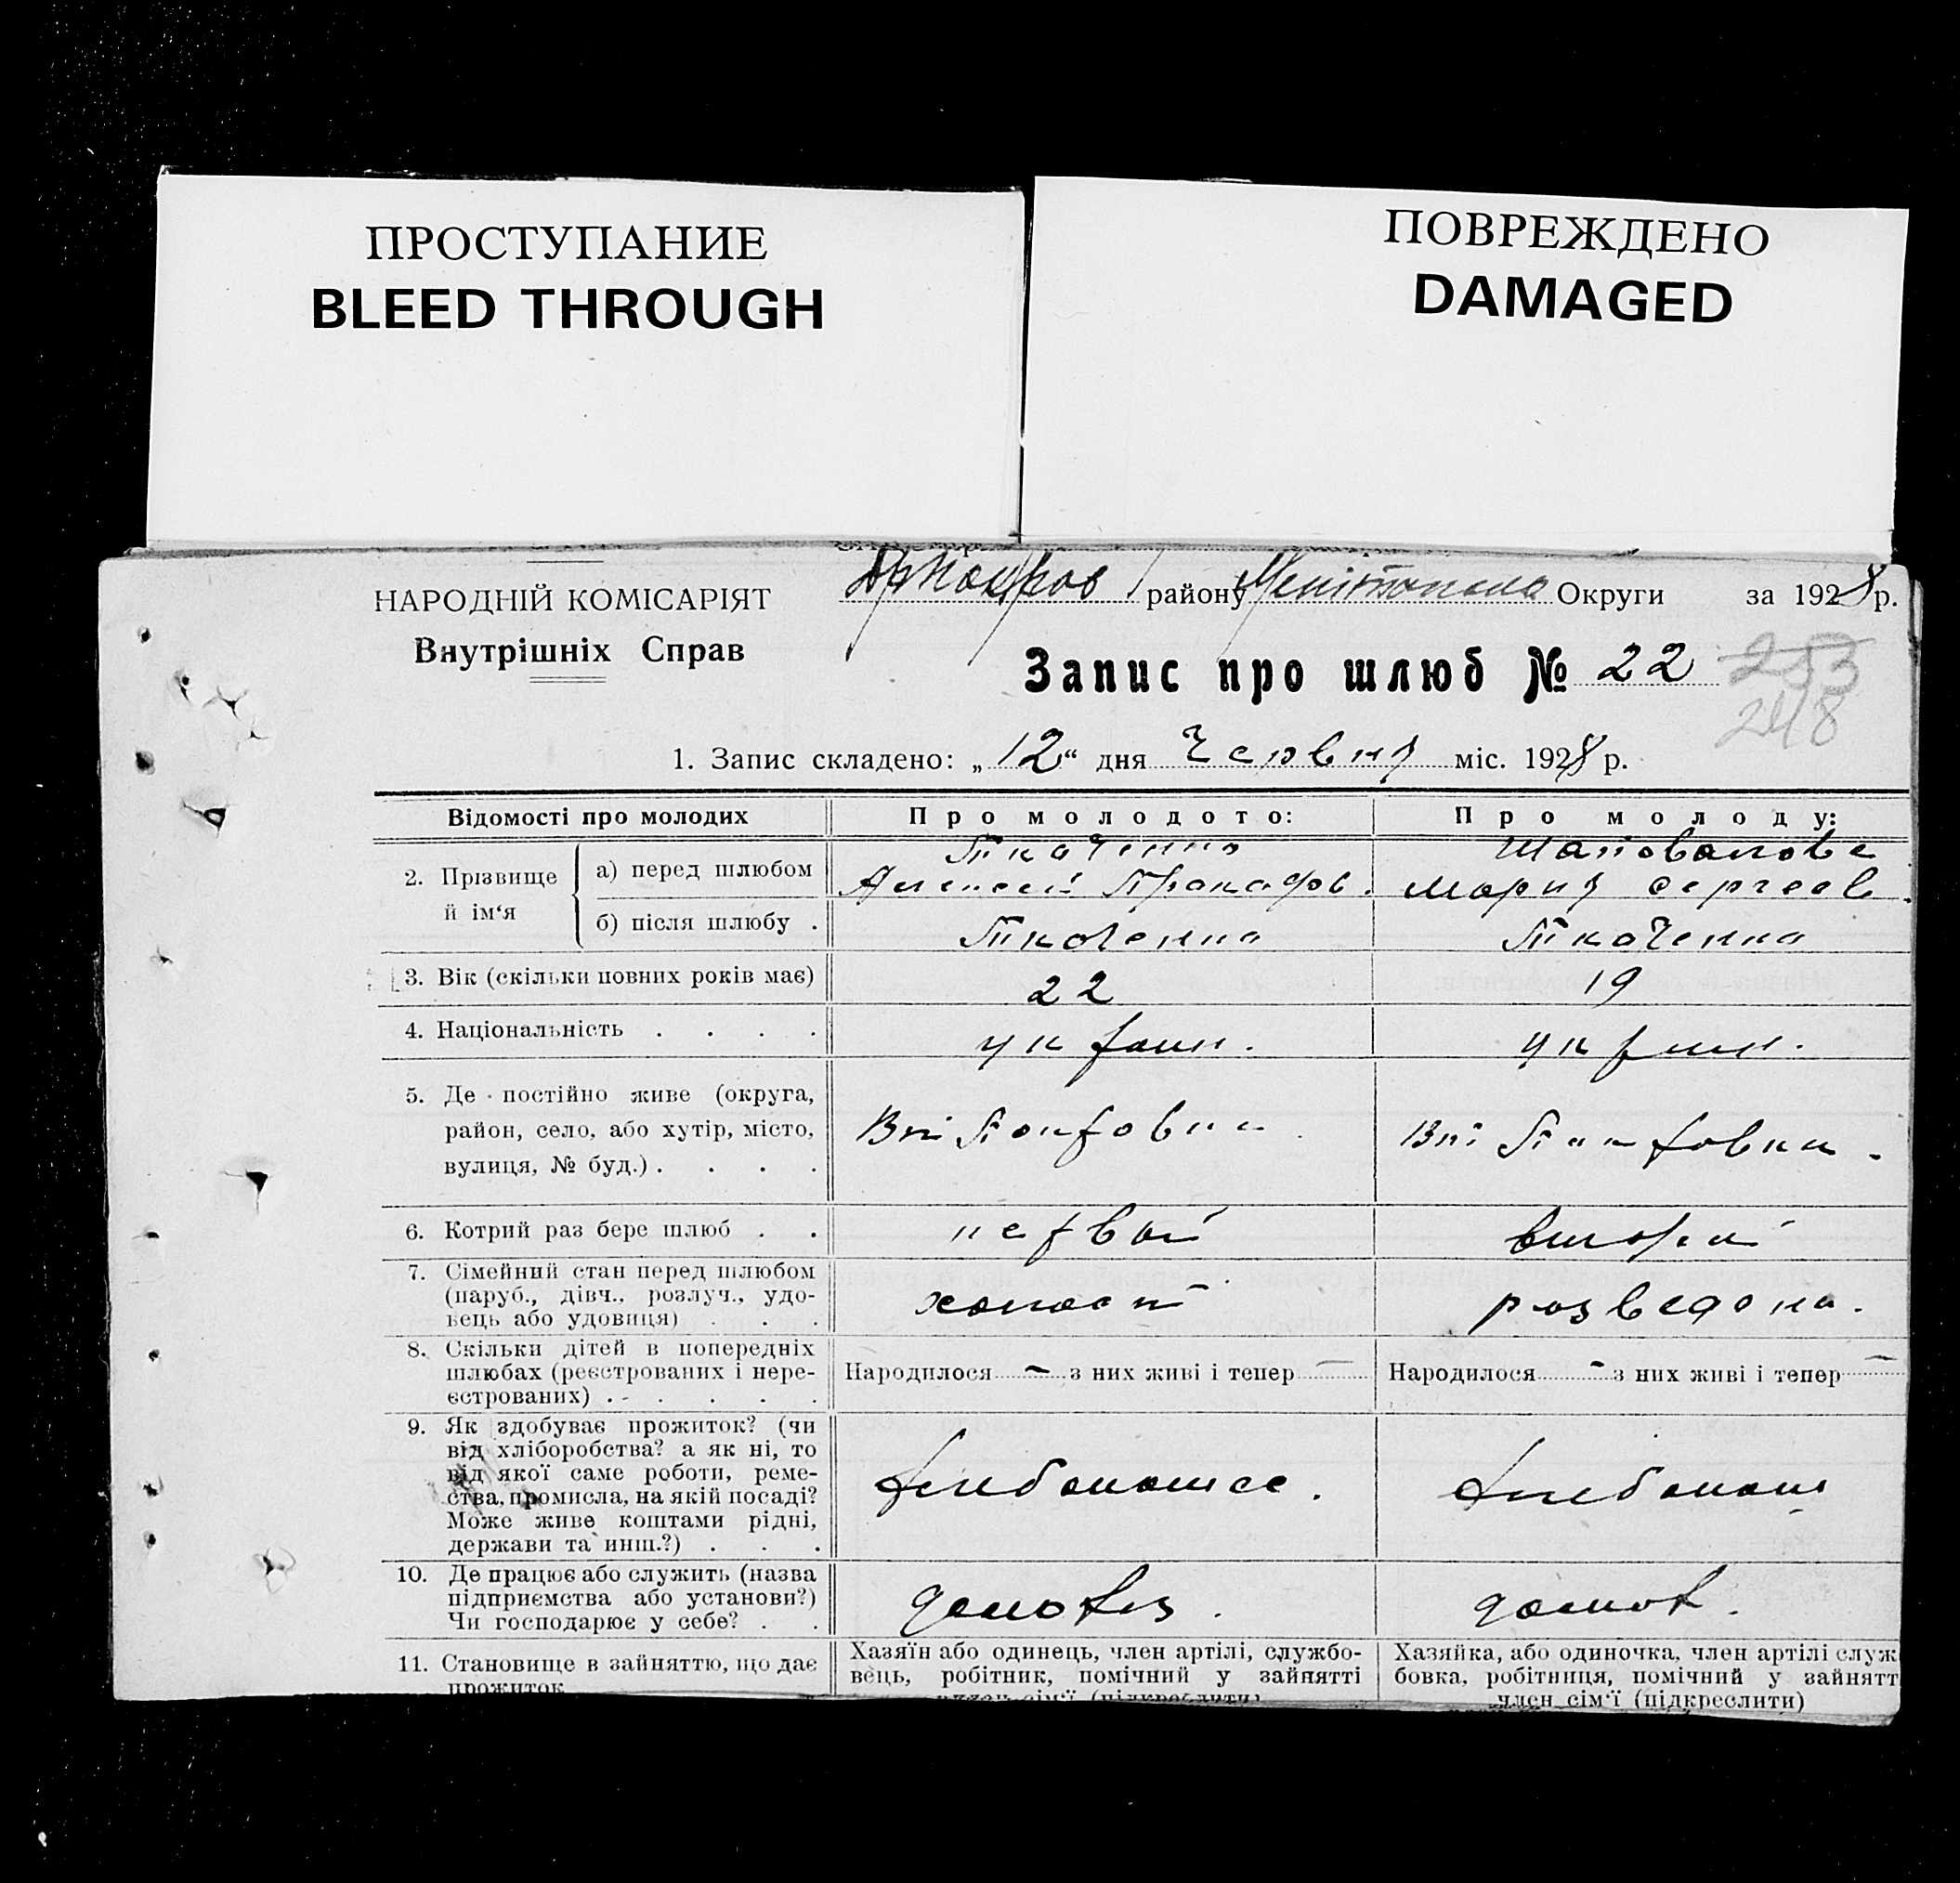 ПРОСТУПАНИЕ
BLEED THROUGH
ПОВРЕЖДЕНО
DAMAGED
НАРОДНІЙ КОМІСАРІЯТ
Внутрішніх Справ
району Округи за 1928 р.
Запис про шлюб № 22 253
248
1. Запис складено: „12“ дня Червня міс. 1928 р.
Відомості про молодих
Про молодого:
Про молоду:
2. Прізвище й ім‘я
а) перед шлюбом
Ткаченко
Алексей Прокофов.
Мария Сергеев.
б) після шлюбу .
Ткаченко
Ткаченко
3. Вік (скільки повних років має)
22
19
4. Національність . . . .
украин.
украин.
5. Де постійно живе (округа,
район, село, або хутір, місто,
вулиця, № буд.) . . . .
6. Котрий раз бере шлюб . .
первый
второй
7. Сімейний стан перед шлюбом
(паруб., дівч., розлуч., удо-
вець або удовиця) . . .
холост
розведена.
8. Скільки дітей в попередніх
шлюбах (реєстрованих і нере-
єстрованих) . . . . .
Народилося — з них живі і тепер —
Народилося — з них живі і тепер —
9. Як здобуває прожиток? (чи
від хліборобства? а як ні, то
від якої саме роботи, реме-
ства, промисла, на якій посаді?
Може живе коштами рідні,
держави та инш.?) . . .
10. Де працює або служить (назва
підприємства або установи?)
Чи господарює у себе? . .
11. Становище в зайняттю, що дає
прожиток
Хазяїн або одинець, член артілі, службо-
вець, робітник, помічний у зайнятті
член сім‘ї (підкреслити)
Хазяйка, або одиночка, член артілі служ
бовка, робітниця, помічний у зайнятт
член сім‘ї (підкреслити)